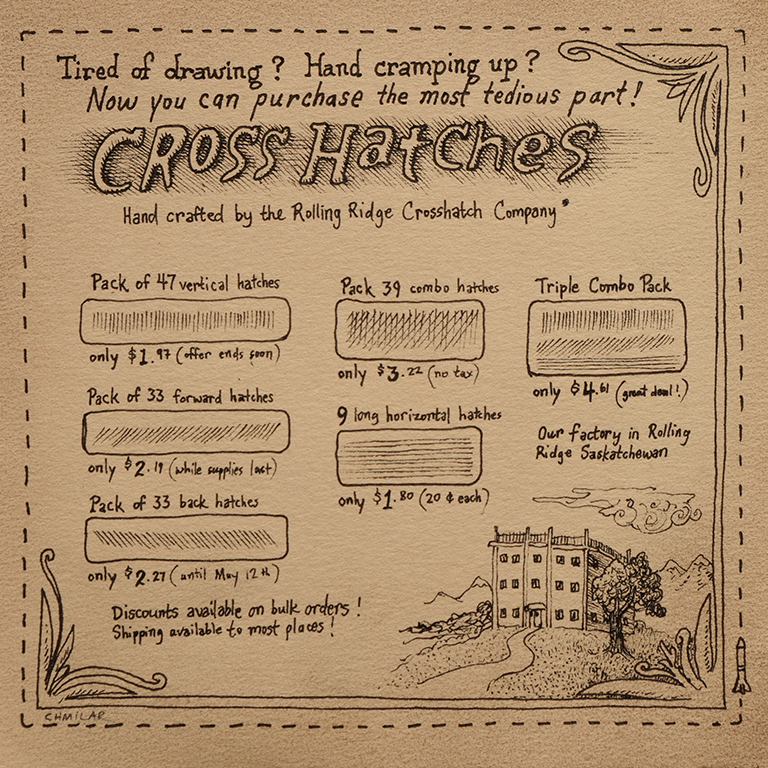 Tired of drawing? Hand cramping up?
Now you can purchase the most tedious part!
CROSS HatChes
Hand crafted by the Rolling Ridge Crosshatch Company*
Pack of 47 vertical hatches
only $1.97 (offer ends soon)
Pack of 33 forward hatches
only $2.19 (while supplies last)
Pack of 33 back hatches
only $2.27 (until May 12th)
Discounts available on bulk orders!
Shipping available to most places!
Pack 39 combo hatches
only $3.22 (no tax)
9 long horizontal hatches
only $1.80 (20 ¢ each)
Triple Combo Pack
only $4.61 (great deal!)
Our factory in Rolling
Ridge Saskatchewan
CHMILAR